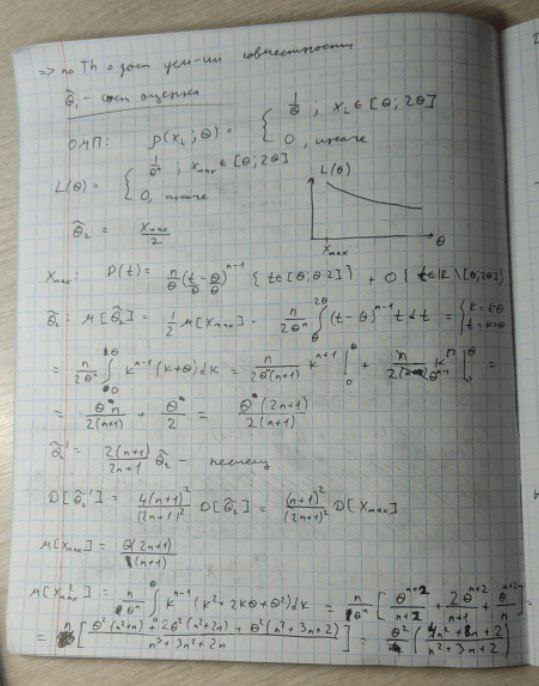 => по Th о дост усл-ии совместности
θ̃₁ - сост оценка
ОМП: p(x_i; θ) = { 1/θ ; x_i ∈ [θ; 2θ]
0, иначе
L(θ) = { 1/θⁿ ; x_max ∈ [θ; 2θ]
0, иначе
L(θ)
x_max
θ
θ̃₂ = x_max/2
x_max: p(t) = n/θ (t/θ - θ/θ)^(n-1) {t ∈ [θ, θ·2]} + 0 {t ∈ ℝ \ [θ; 2θ]}
θ̃₂: M[θ̃₂] = 1/2 M[x_max] = n/(2θⁿ) ∫_θ^(2θ) (t-θ)^(n-1) t dt = { k = t-θ
t = k+θ
= n/(2θⁿ) ∫_0^θ k^(n-1) (k+θ) dk = n/(2θⁿ(n+1)) k^(n+1) |_0^θ + kⁿ |_0^θ =
= θn/(2(n+1)) + θ/2 = θ(2n+1)/(2(n+1))
θ̃₂' = 2(n+1)/(2n+1) θ̃₂ -
D[θ̃₂'] = 4(n+1)²/(2n+1)² D[θ̃₂] = (n+1)²/(2n+1)² D[x_max]
M[x_max] = θ(2n+1)/(n+1)
M[x²_max] = n/θⁿ ∫_0^θ k^(n-1) (k² + 2kθ + θ²) dk = n/θⁿ [θ^(n+2)/(n+2) + 2θ^(n+2)/(n+1) + θ^(n+2)/n] =
= n [(θ²(n²+n) + 2θ²(n²+2n) + θ²(n²+3n+2))/(n³+3n²+2n)] = θ² ((4n²+8n+2)/(n²+3n+2))